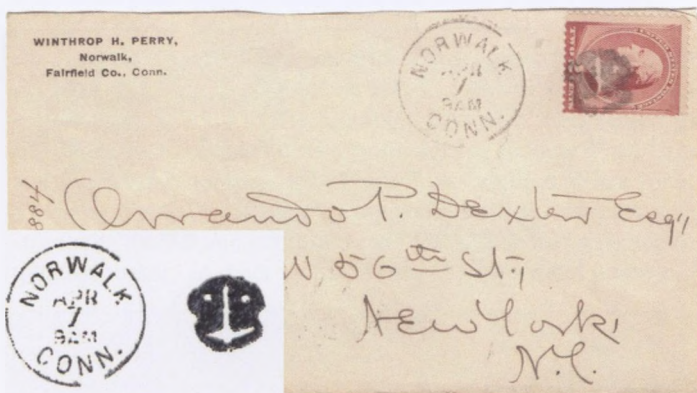 WINTHROP H. PERRY,
Norwalk,
Fairfield Co., Conn.
NORWALK
APR
7
9AM
CONN.
884
Orrando P. Dexter Esq,
W 56th St,
New York,
N.Y.
NORWALK
APR
7
9AM
CONN.